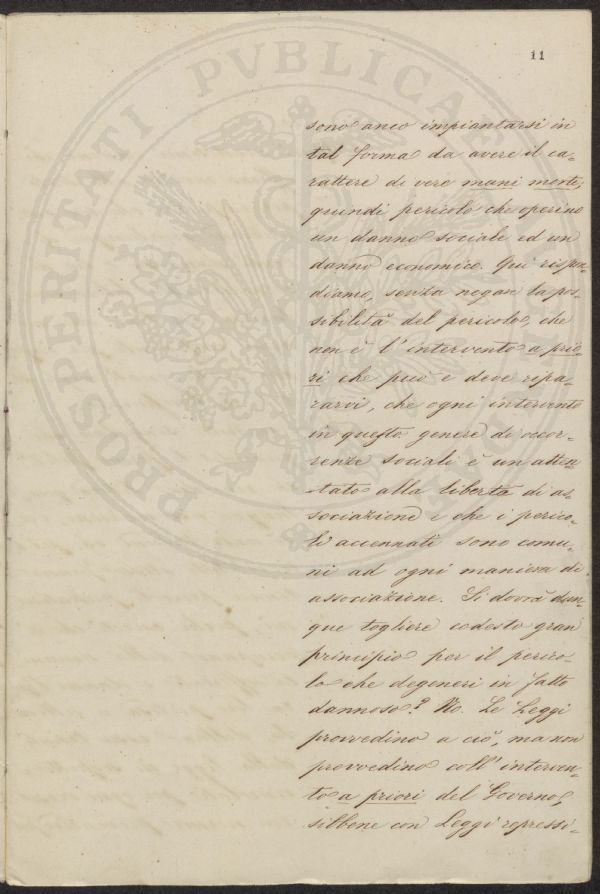 11
PROSPERITATI PVBLICAE
sono anco impiantarsi in
tal forma da avere il ca-
rattere di vere mani morte;
quindi pericolo che operino
un danno sociale ed un
danno economico. Quì rispon-
diamo, senza negar la pos-
sibilità del pericolo, che
non è l'intervento a prio-
ri che può e deve ripa-
rarvi, che ogni intervento
in questo genere di occor-
renze sociali è un atten-
tato alla libertà di as-
sociazione e che i perico-
li accennati sono comu-
ni ad ogni maniera di
associazione. Si dovrà dun-
que togliere codesto gran
principio per il perico-
lo che degeneri in fatto
dannoso? No. Le Leggi
provvedino a ciò, ma non
provvedino coll'interven-
to a priori del Governo,
sibbene con Leggi repressi-